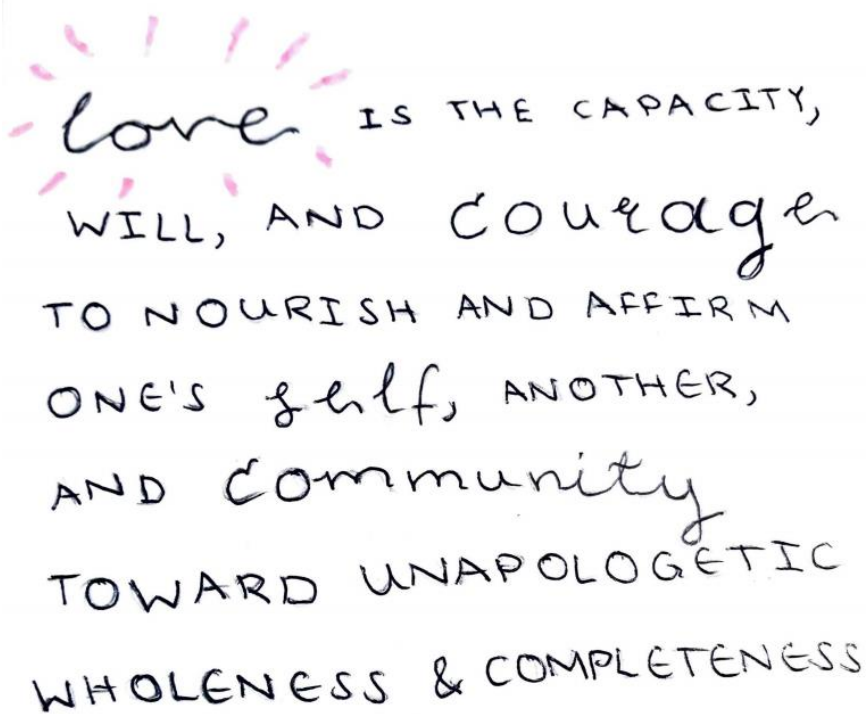 love IS THE CAPACITY,
WILL, AND courage
TO NOURISH AND AFFIRM
ONE'S self, ANOTHER,
AND community
TOWARD UNAPOLOGETIC
WHOLENESS & COMPLETENESS